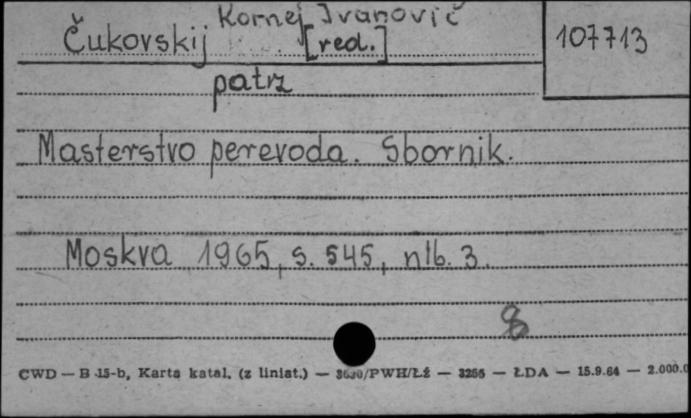 Kornej Ivanovič
Čukovskij [red.]
107713
patrz
Masterstvo perevoda. Sbornik.
Moskva 1965, s. 545, nlb. 3.
CWD — B 15-b, Karta katal. (z liniat.) — /PWH/Łź — 3266 — ŁDA — 15.9.64 — 2.000.0